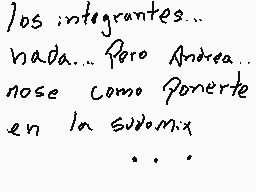 los integrantes...
nada... Pero Andrea..
nose como Ponerte
en la sudomix
...